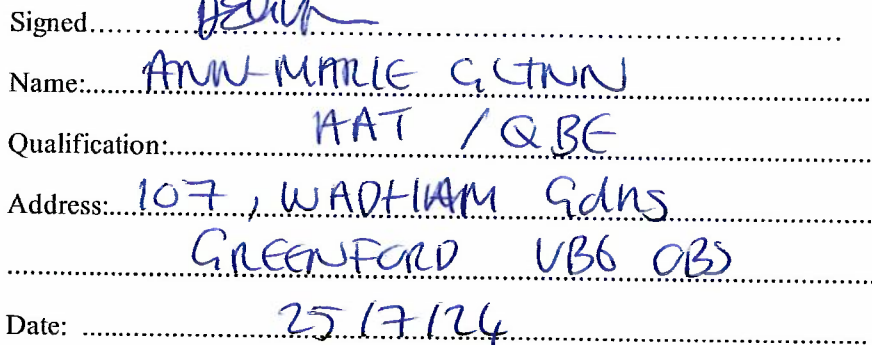 Signed
Name: ANN-MARIE GLYNN
Qualification: AAT / QBE
Address: 107, WADHAM Gdns
GREENFORD UB6 0BS
Date: 25/7/24